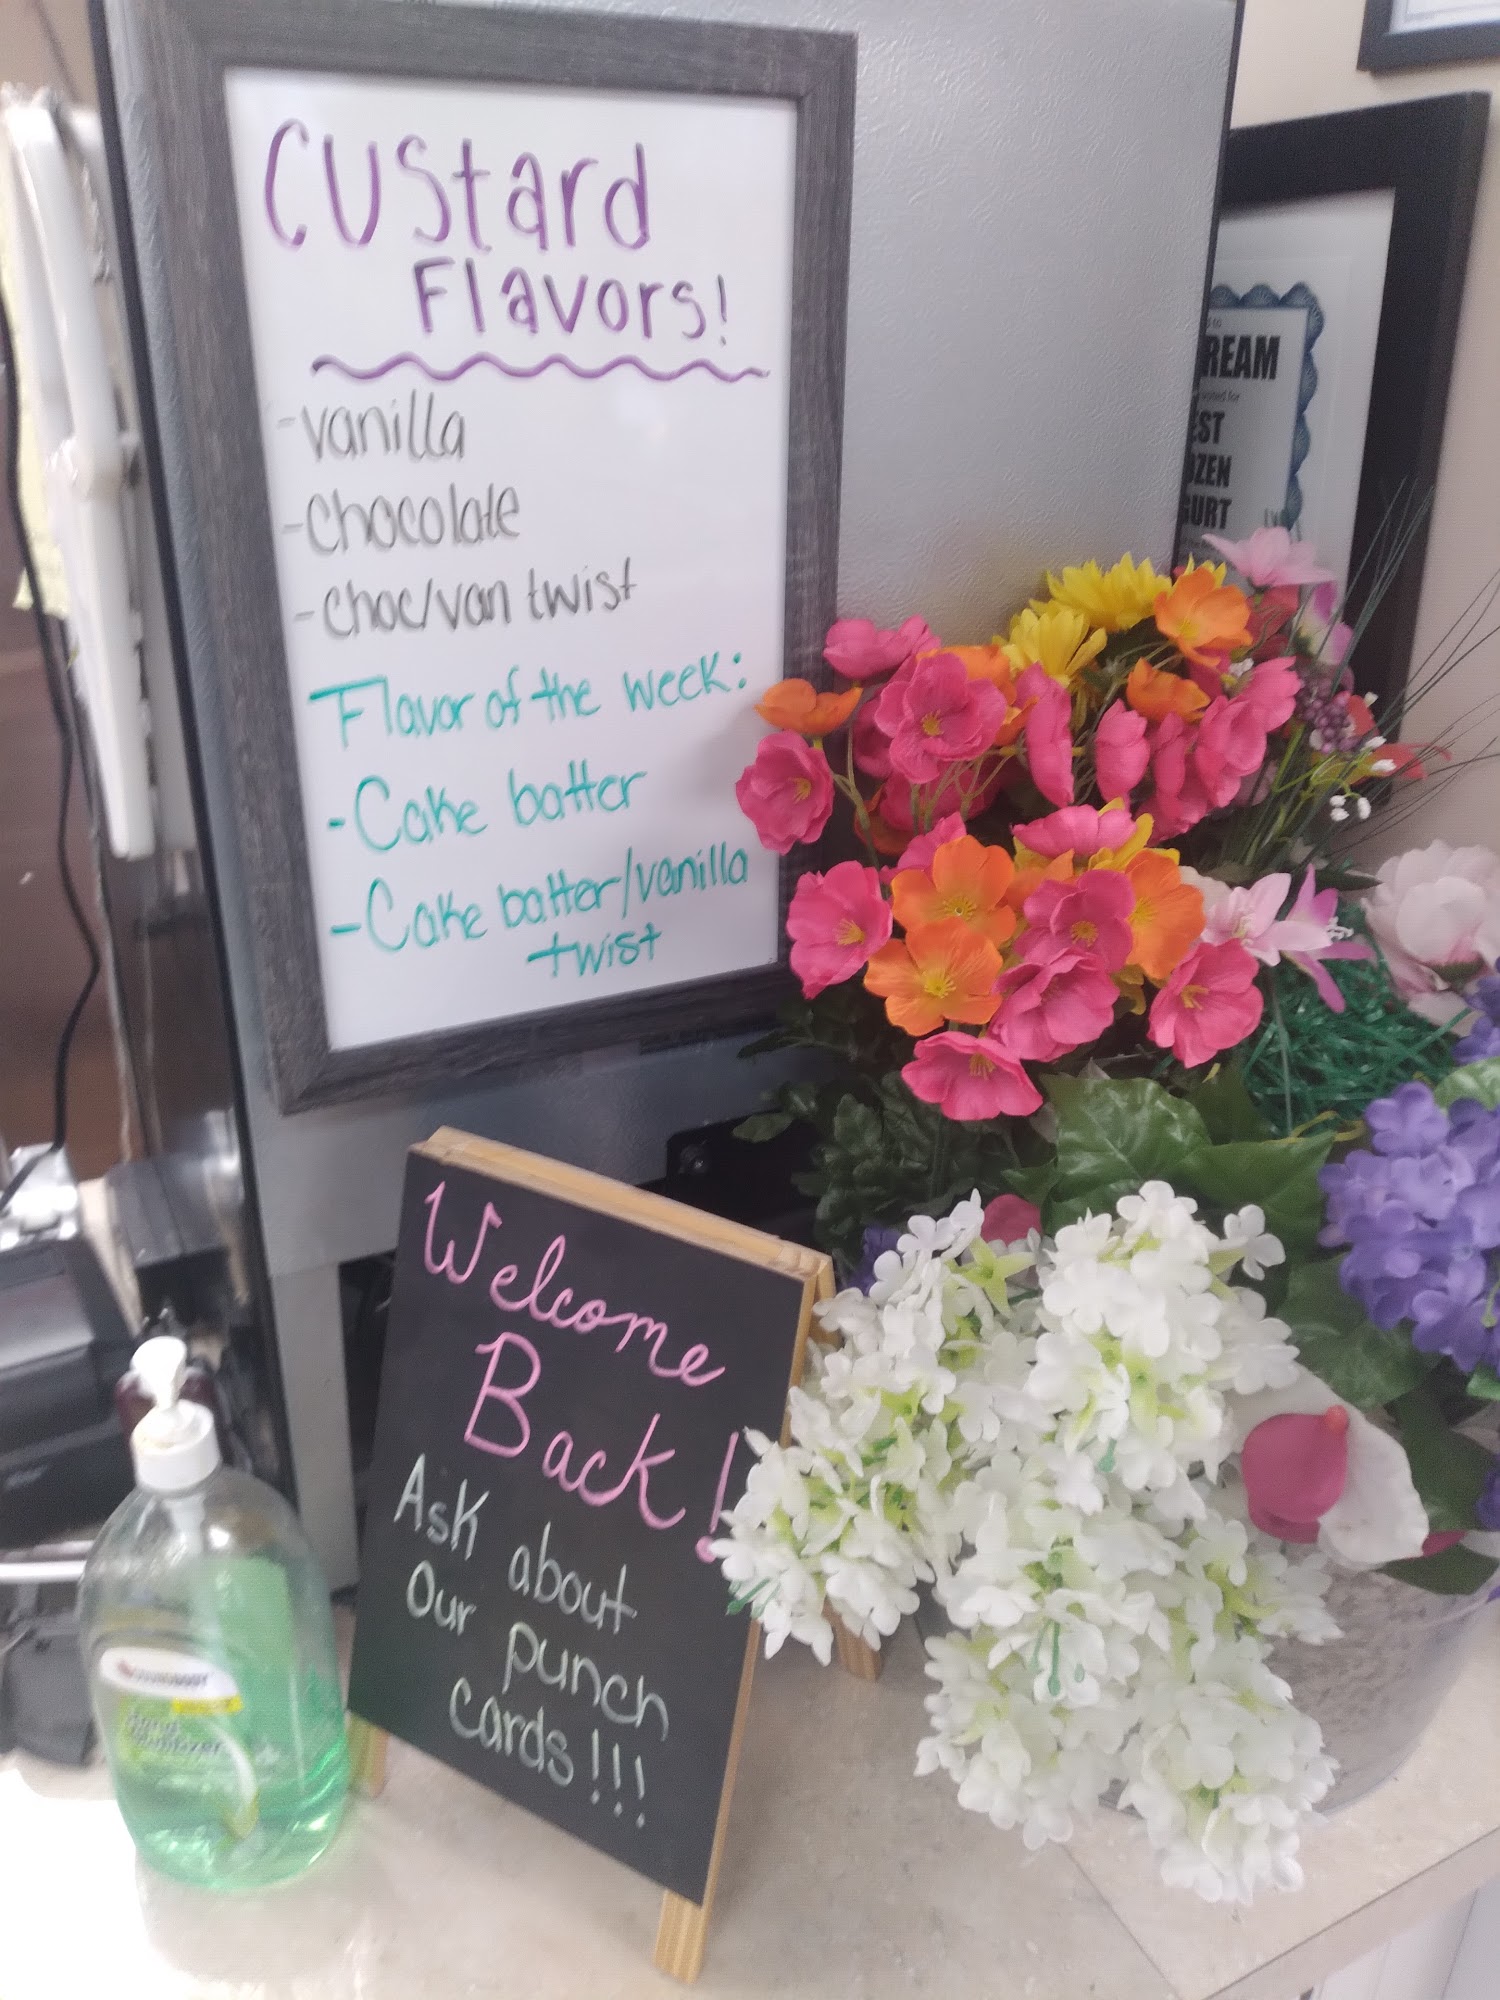 CUStard
Flavors!
-vanilla
-chocolate
-choc/van twist
Flavor of the week:
-Cake batter
-Cake batter/vanilla
twist
Welcome
Back!
Ask about
Our punch
cards!!!
REAM
voted for
EST
OZEN
GURT